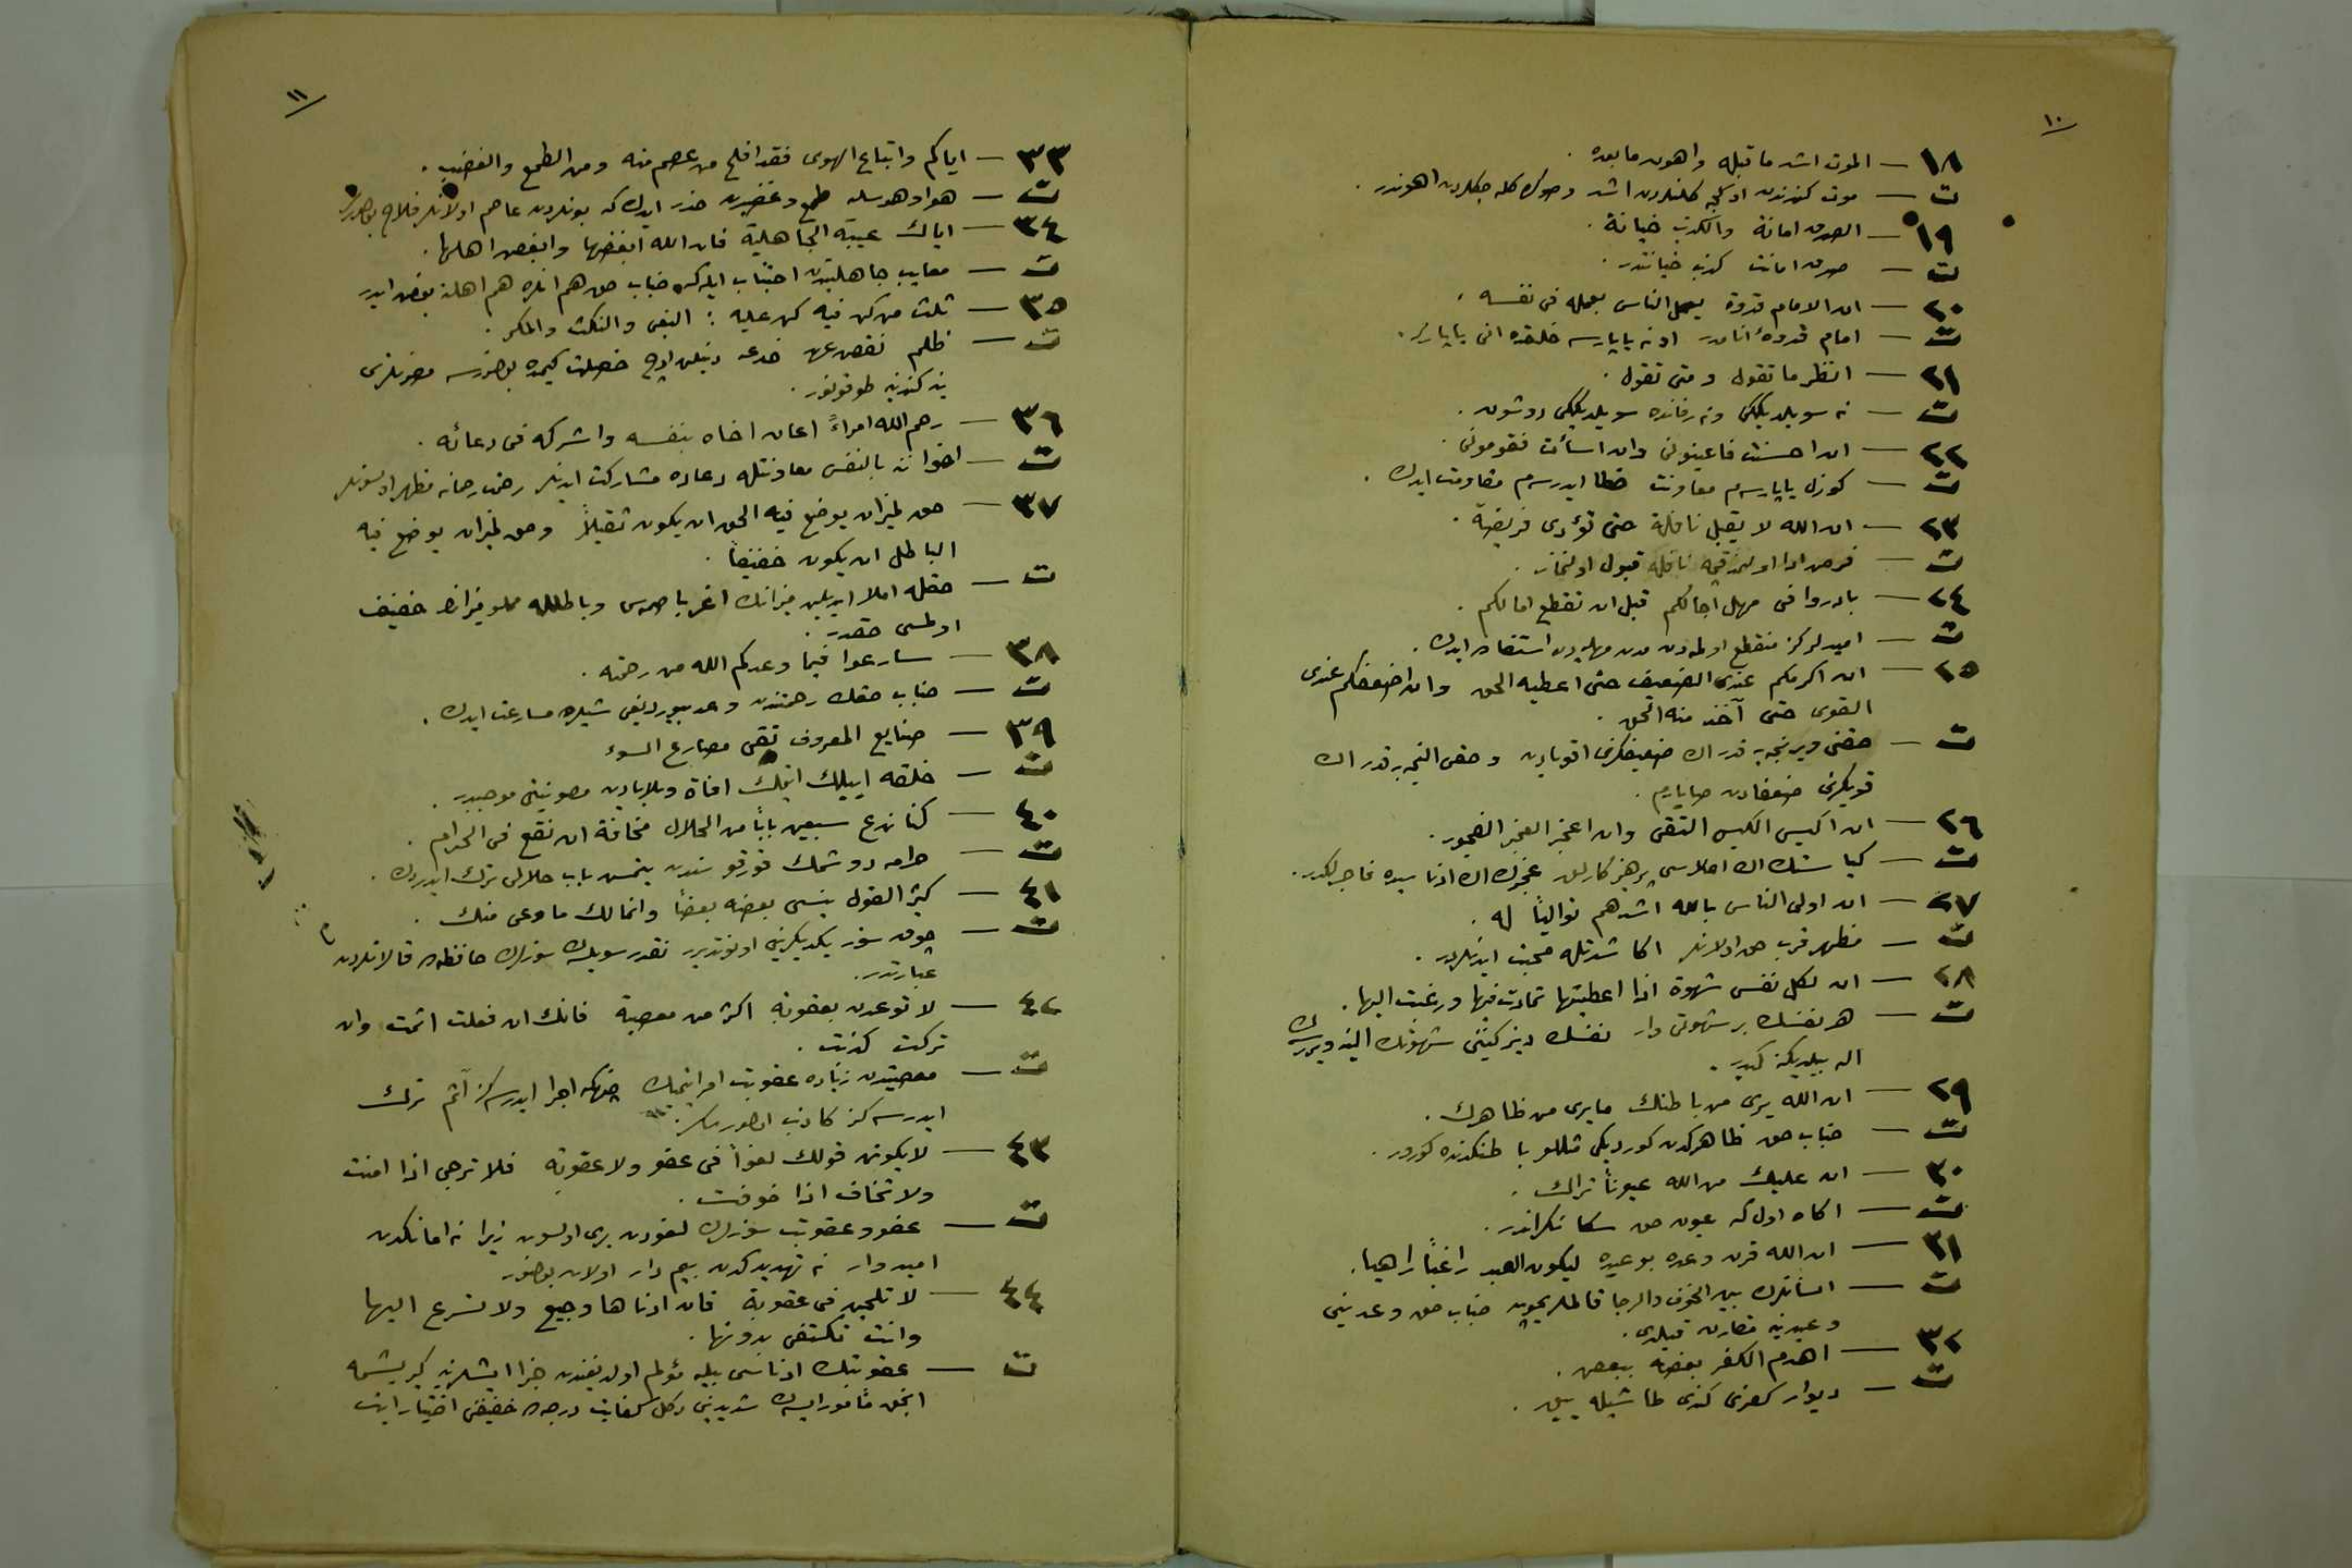 ١٠
١٨ — الموت اشد ما قبله واهون ما بعده .
ت — موت كندندن اوكجه كلنلردن اشد وصوكره كله جكلردن اهوندر .
١٩ — الصدق امانة والكذب خيانة .
ت — صدق امانت كذب خيانتدر .
٢٠ — ان الامام قدوة يعمل الناس بعمله فى نفسه .
ت — امام قدوۀ انامدر او نه ياپارسه خلقده انى ياپار .
٢١ — انظر ما تقول و متى تقول .
ت — نه سويلديككى ونه زمانده سويلديككى دوشون .
٢٢ — ان احسنت فاعينونى وان اسأت فقومونى .
ت — كوزل ياپارسه م معاونت خطا ايدرسه م مقاومت ايدك .
٢٣ — ان الله لا يقبل نافلة حتى تؤدى فريضة .
ت — فرض ادا اولنمدقجه نافله قبول اولنماز .
٢٤ — بادروا فى مهل آجالكم قبل ان تقطع امالكم .
ت — اميدلركز منقطع اولمه دن مدن مهله دن استفاده ايدك .
٢٥ — ان اكرمكم عندى الضعيف حتى اعطيه الحق وان اضعفكم عندى
القوى حتى آخذ منه الحق .
ت — حقنى ويرنجه يه قدر اك ضعيفكزى اقويادن وحقى النجه يه قدر اك
قويكزى ضعفادن صايارم .
٢٦ — ان اكيس الكيس التقى وان اعجز العجز الفجور .
ت — كياستك اك اعلاسى پرهيزكارلق عجزك اك ادناسيده فاجرلكدر .
٢٧ — ان اولى الناس بالله اشدهم توالياً له .
ت — مظهر قرب حق اولانلر اكا شدتله محبت ايدنلردر .
٢٨ — ان لكل نفس شهوة اذا اعطيتها تمادت فيها ورغبت اليها .
ت — هر نفسك بر شهوتى وار نفسك ديزكيننى شهوتك الينه ويررسه ك
اله بيلديكنه كيدر .
٢٩ — ان الله يرى من باطنك ما يرى من ظاهرك .
ت — جناب حق ظاهركدن كورديكى مثللو باطنكدنده كورر .
٣٠ — ان عليك من الله عيوناً تراك .
ت — اكاه اول كه عيون حق سكا نكراندر .
٣١ — ان الله قرن وعده بوعيده ليكون العبد راغباً راهبا .
ت — انسانلرك بين الخوف والرجا قالملريچون جناب حق وعدينى
وعيدينه مقارن قيلدى .
٣٢ — اهدم الكفر بعضه ببعض .
ت — ديوار كفرى كندى طاشيله ييق .
١١
٣٣ — اياكم واتباع الهوى فقد افلح من عصم منه ومن الطمع والغضب .
ت — هوا وهوسله طمع وغضبدن حذر ايدك كه بونلردن عاصم اولانلر فلاح بولورلر
٣٤ — اياك عيبة الجاهلية فان الله ابغضها وابغض اهلها .
ت — معايب جاهليتدن اجتناب ايله كه جناب حق هم انلره هم اهلنه بغض ايدر
٣٥ — ثلث من كن فيه كن عليه : البغى والنكث والمكر .
ت — ظلم نقض عهد خدعه دينلن اوچ خصلت كيمده بولنورسه مضرتلرى
ينه كندينه طوقونور .
٣٦ — رحم الله امراءً اعان اخاه بنفسه واشركه فى دعائه .
ت — اخواننه بالنفس معاونتله دعاده مشاركت ايدنلر رحمت رحمانه مظهر اولسونلر
٣٧ — حق لميزان يوضع فيه الحق ان يكون ثقيلاً وحق لميزان يوضع فيه
الباطل ان يكون خفيفاً .
ت — حقله املا ايديلن ميزانك اغر باصمه سى وباطلله مملو ميزانك خفيف
اولمسى حقدر .
٣٨ — سارعوا فيما وعدكم الله من رحمته .
ت — جناب حقك رحمتندن وعد بيورديغى شيلره مسارعت ايدك .
٣٩ — صنايع المعروف تقى مصارع السوء
ت — خلقه اييلك ايتمك افاة وبلايادن مصونيتى موجبدر .
٤٠ — كنا ندع سبعين باباً من الحلال مخافة ان نقع فى الحرام .
ت — حرامه دوشمك قورقوسندن يتمش باب حلالى ترك ايدردك .
٤١ — كثير القول ينسى بعضه بعضاً وانما لك ما وعى منك .
ت — چوق سوز يكديكرينى اونوتديرر نقدر سويله سه ك سوزلرك حافظه ده قالانلردن
عبارتدر .
٤٢ — لا توعدن بعقوبة اكثر من معصية فانك ان فعلت اثمت وان
تركت كذبت .
ت — معصيتدن زياده عقوبت امر ايتمك چونكه اجرا ايدرسه كز آثم ترك
ايدرسه كز كاذب اولورسكز .
٤٣ — لا يكونن قولك لغواً فى عفو ولا عقوبة فلا ترجى اذا امنت
ولا تخاف اذا خوفت .
ت — عفو وعقوبت سوزلرك لغودن برى اولسون زيرا نه امانكدن
اميدوار نه تهديدكدن بيم دار اولان بولنور
٤٤ — لا تلجن فى عقوبة فان ادناها وجيع ولا تسرع اليها
وانت تكتفى بدونها .
ت — عقوبتك ادناسى بيله مؤلم اولديغندن جزا ايشلرينه كيريشمه
انجق مأمور ايسه ك شديدينى دكل كفايت درجه ده خفيفنى اختيار ايت